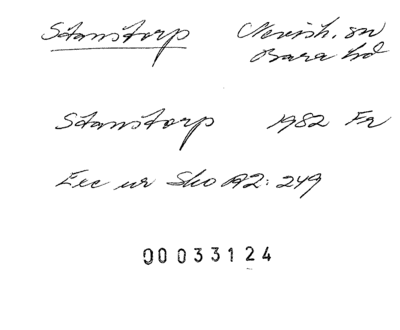 Stanstorp Nevish. sn
Bara hd
Stanstorp 1982 Fr
Exc ur Sko A2: 249
00033124